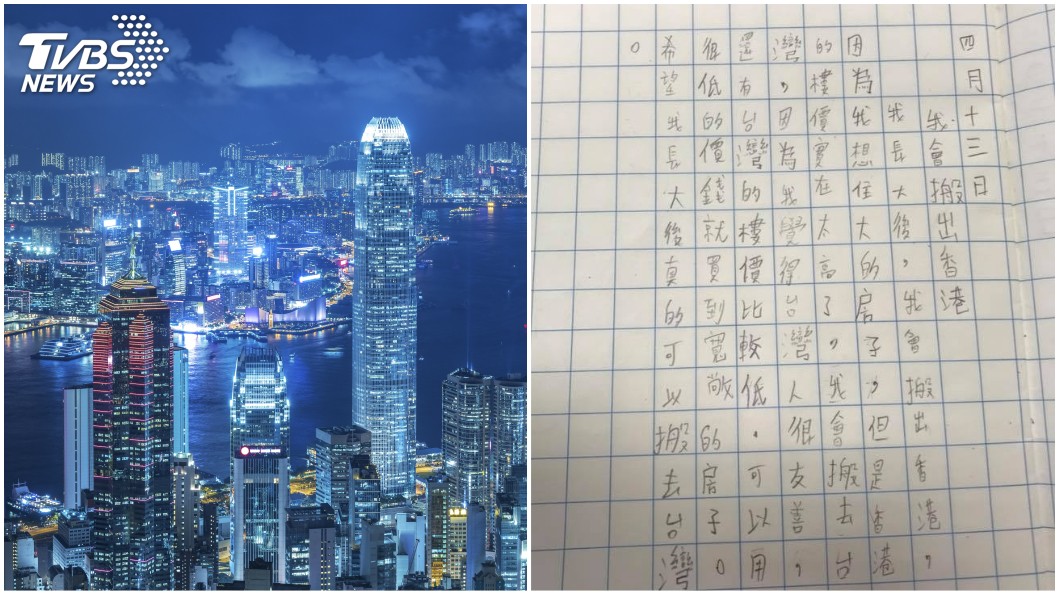 TVBS
NEWS
四月十三日
我會搬出香港
我長大後，我會搬出香港，
因為我想住大的房子，但是香港
的樓價實在太高了，我會搬去台
灣，因為我覺得台灣人很友善，
還有台灣的樓價比較低．可以用
很低的價錢就買到寬敞的房子。
希望我長大後真的可以搬去台灣
。